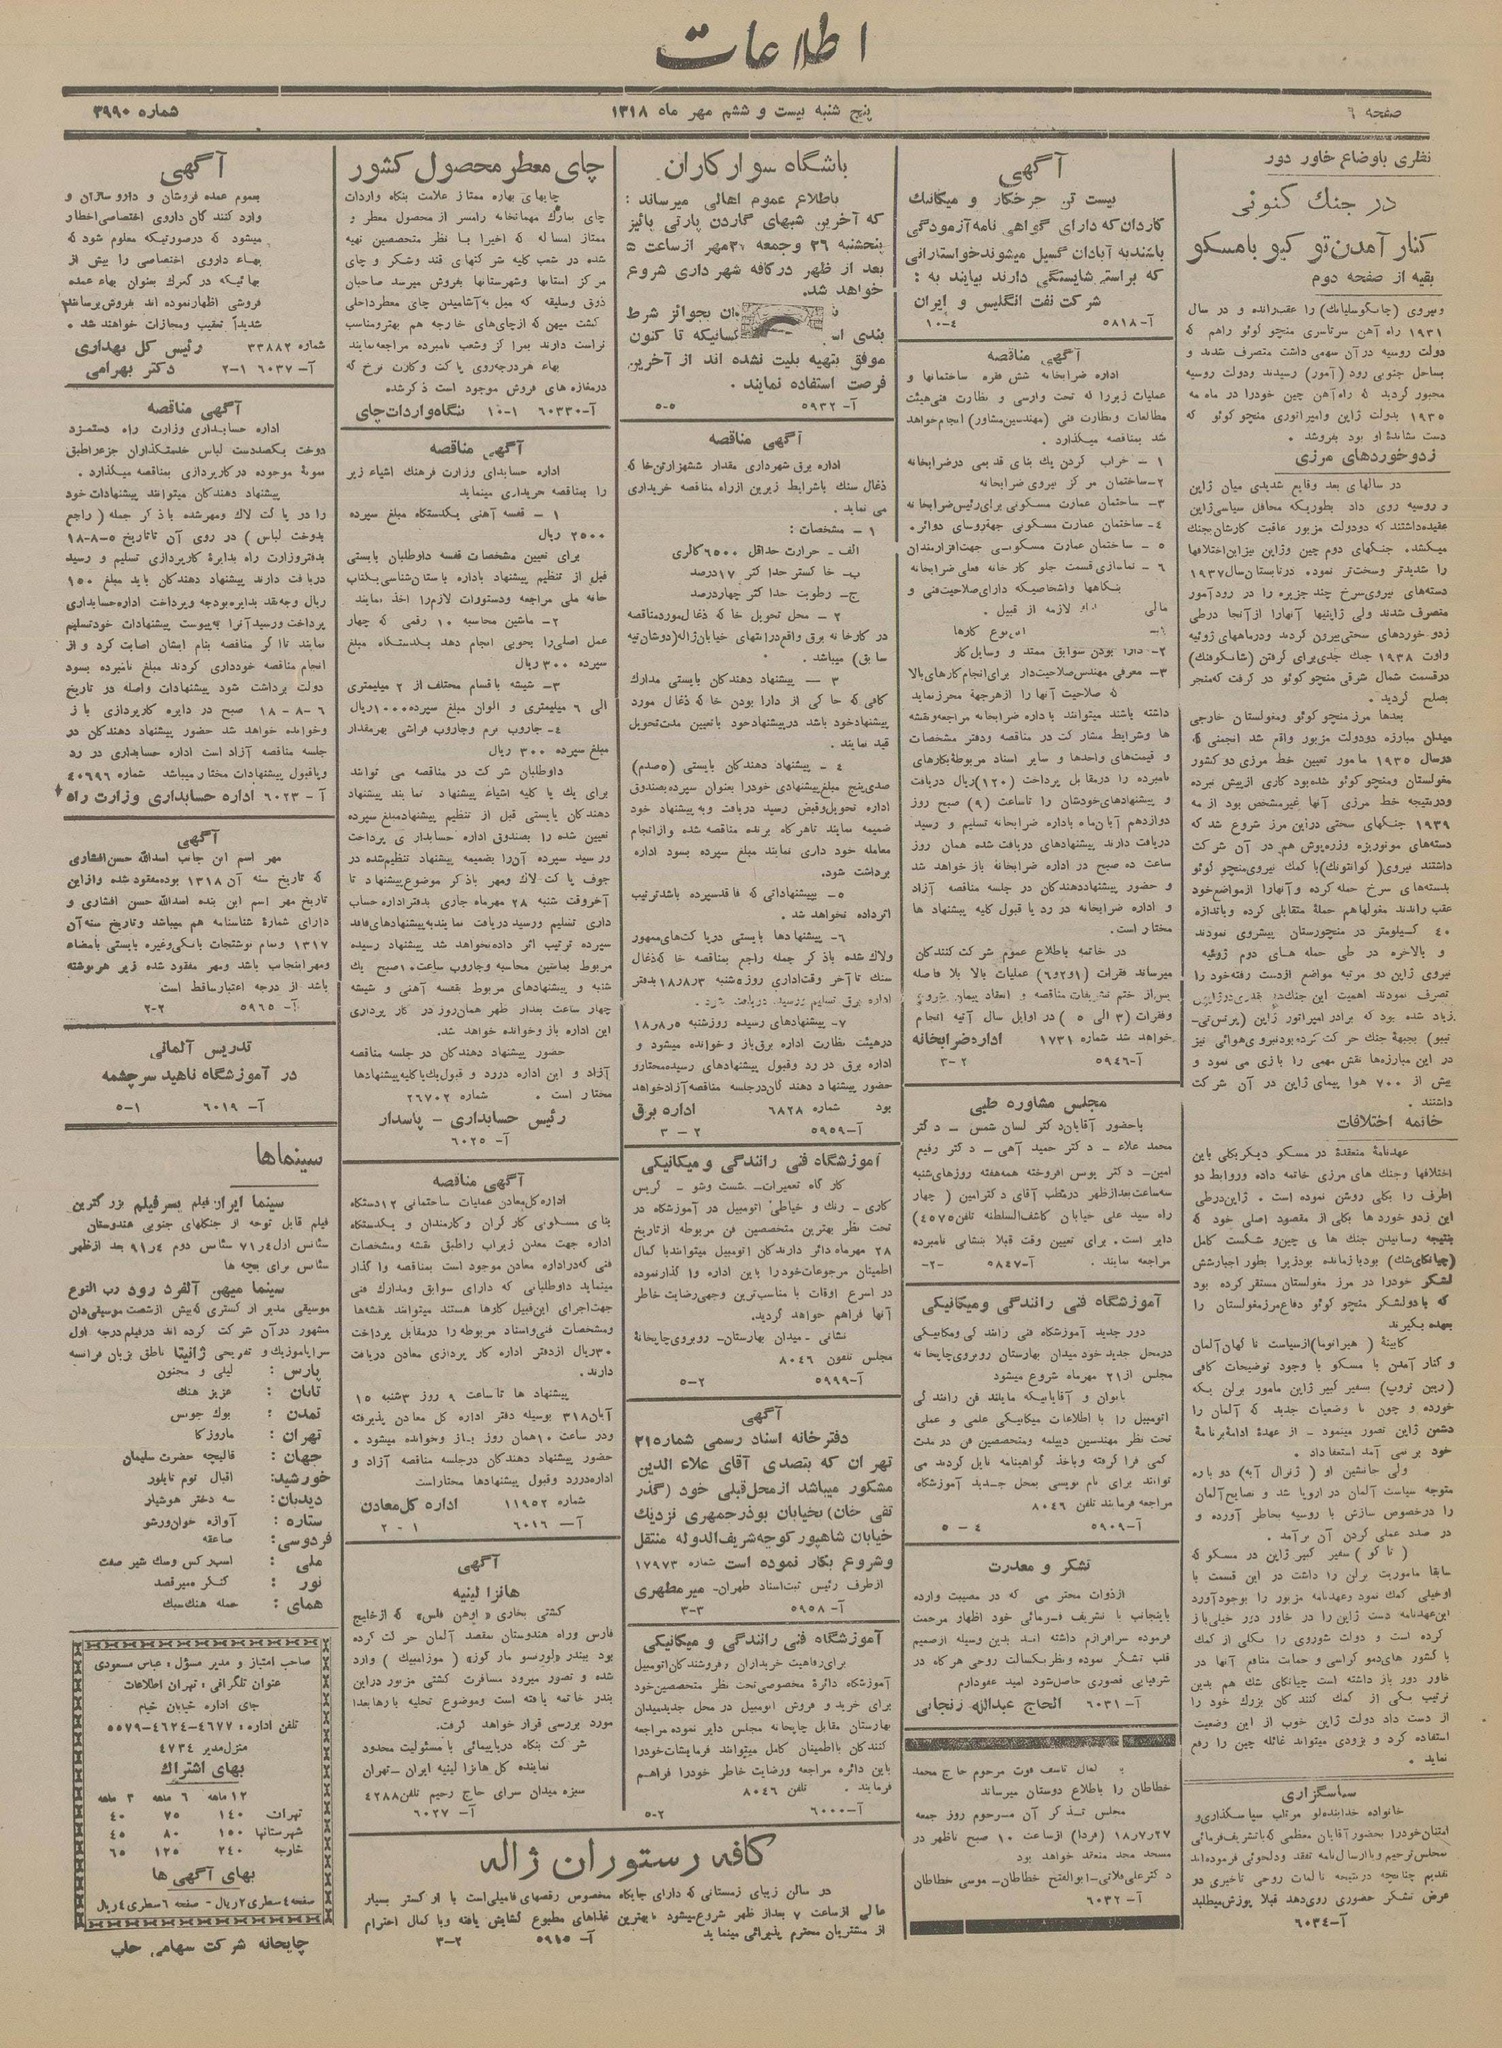 اطلاعات
صفحه ۶
پنج شنبه بیست و ششم مهر ماه ۱۳۱۸
شماره ۳۹۹۰
نظری باوضاع خاور دور
در جنك كنونی
كنار آمدن تو كیو بامسكو
بقیه از صفحه دوم
نیروی (چانکوسلیانك) را عقب‌رانده و در سال
۱۹۳۱ راه آهن سرتاسری منچو كوئو راهم كه
دولت روسیه در آن سهمی داشت متصرف شدند و
بساحل جنوبی رود (آمور) رسیدند ودولت روسیه
مجبور گردید كه راه آهن چین خودرا در ماه مه
۱۹۳۵ بدولت ژاپن وامپراتوری منچو كوئو كه
دست نشاندهٔ او بود بفروشد.
زدوخوردهای مرزی
در سالهای بعد وقایع شدیدی میان ژاپن
و روسیه روی داد بطوریكه محافل سیاسی ژاپن
عقیده‌داشتند كه دودولت مزبور عاقبت كارشان‌بجنك
میكشد. جنگهای دوم چین وژاپن نیزاین‌اختلافها
را شدیدتر وسخت‌تر نمود. درتابستان‌سال۱۹۳۷
دسته‌های نیروی‌سرخ چند جزیره را در رودآمور
متصرف شدند ولی ژاپنیها آنهارا ازآنجا درطی
زدوخوردهای سختی‌بیرون كردند ودرماههای ژوئیه
واوت ۱۹۳۸ جنك جدی‌برای گرفتن (شانكوفنك)
درقسمت شمال شرقی منچو كوئو در گرفت كه‌منجر
بصلح گردید.
بعدها مرز منچو كوئو ومغولستان خارجی
میدان مبارزه دودولت مزبور واقع شد انجمنی كه
درسال ۱۹۳۵ مامور تعیین خط مرزی دو كشور
مغولستان ومنچو كوئو شده‌بود كاری ازپیش نبرده
ودرنتیجه خط مرزی آنها غیرمشخص بود از مه
۱۹۳۹ جنگهای سختی دراین مرز شروع شد كه
دسته‌های موتوریزه وزره‌پوش هم در آن شركت
داشتند نیروی( كوانتونك)با كمك نیروی‌منچو كوئو
بدسته‌های سرخ حمله كرده و آنهارا ازمواضع‌خود
عقب راندند مغولهاهم حملهٔ متقابلی كرده وباندازه
۴۰ كیلومتر در منچورستان پیشروی نمودند
و بالاخره در طی حمله های دوم ژوئیه
نیروی ژاپن دو مرتبه مواضع ازدست رفته‌خود را
تصرف نمودند اهمیت این جنك‌ در
زیاد شده بود كه برادر امپراتور ژاپن (پرنس‌تی-
تیبو) بجبههٔ جنك حر كت كرده بودنیروی‌هوائی نیز
در این مبارزه‌ها نقش مهمی را بازی می نمود و
بیش از ۷۰۰ هوا پیمای ژاپن در آن شركت
داشتند.
خاتمه اختلافات
عهدنامهٔ منعقدهٔ در مسكو دیگربكلی باین
اختلافها وجنك های مرزی خاتمه داده وروابط دو
اطرف را بكلی روشن نموده است. ژاپن‌درطی
این زدو خوردها بكلی از مقصود اصلی خود كه
بنتیجه رسانیدن جنك ها ی چین‌و شكست كامل
(چیانكای‌شك) بودبازمانده بودزیرا بطور اجبارشش
لشگر خودرا در مرز مغولستان مستقر كرده بود
كه بادولشگر منچو كوئو دفاع‌مرزمغولستان را
بعهده بگیرند
كابینهٔ ( هیرانوما)ازسیاست نا گهان آلمان
و كنار آمدن با مسكو با وجود توضیحات كافی
(ربین تروپ) بسفیر كبیر ژاپن مامور برلن یكه
خورده و چون با وضعیات جدید كه آلمان را
دشمن ژاپن تصور مینمود - از عهدهٔ ادامهٔ برنامهٔ
خود بر نمی آمد استعفا داد.
ولی جانشین او ( ژنرال آبه) دو باره
متوجه سیاست آلمان در اروپا شد و نصایح آلمان
را درخصوص سازش با روسیه بخاطر آورده و
در صدد عملی كردن آن برآمد.
( تا كو ) سفیر كبیر ژاپن در مسكو كه
سابقا ماموریت برلن را داشت در این قسمت با
اوخیلی كمك نمود وعهدنامه مزبور را بوجودآورد
این‌عهدنامه دست ژاپن را در خاور دور خیلی‌باز
كرده است و دولت شوروی را بكلی از كمك
با كشور های‌دمو كراسی و حمایت منافع آنها در
خاور دور باز داشته است چیانكای شك هم بدین
ترتیب یكی از كمك كنند كان بزرك خود را
از دست داد دولت ژاپن خوب از این وضعیت
استفاده كرد و بزودی میتواند غائله چین را رفع
نماید.
سپاسگزاری
خانواده خدابنده‌لو مراتب سپاسگذاری و
امتنان‌خودرا بحضور آقایان معظمی كه‌باتشریف‌فرمائی
بمجلس‌ترحیم و باارسال‌نامه تفقد ودلجوئی فرموده‌اند
تقدیم چنانچه در نتیجه تالمات روحی تاخیری در
عرض تشكر حضوری روی‌دهد قبلا پوزش‌میطلبد
آ-۶۰۳۴
آگهی
بیست تن چرخكار و میكانیك
كاردان‌كه دارای گواهی نامه آزمودگی
باشندبه آبادان گسیل میشوندخواستارانی
كه براستی شایستگی دارند بیایند به :
شركت نفت انگلیس و ایران
آ-۵۸۱۸ ۴-۱۰
آگهی مناقصه
اداره ضرابخانه شش فقره ساختمانها و
عملیات زیررا كه تحت وارسی و نظارت فنی‌هیئت
مطالعات ونظارت فنی (مهندسین‌مشاور) انجام‌خواهد
شد بمناقصه میگذارد.
۱ - خراب كردن یك بنای قدیمی درضرابخانه
۲-ساختمان مر كز نیروی ضرابخانه
۳- ساختمان عمارت مسكونی برای‌رئیس‌ضرابخانه
۴- ساختمان عمارت مسكونی جهةروسای دوائر.
۵ - ساختمان عمارت مسكونی جهت‌افزارمندان
۶ - نماسازی قسمت جلو كارخانه فعلی ضرابخانه
بنگاهها واشخاصیكه دارای‌صلاحیت‌فنی و
مالی لازمه از قبیل.
كارها
۲- دارا بودن سوابق ممتد و وسایل‌كار
۳- معرفی مهندس‌صلاحیت‌دار برای‌انجام كارهای‌بالا
كه صلاحیت آنها را ازهرجهة محرزنماید
داشته باشند میتوانند باداره ضرابخانه مراجعه‌ونقشه
ها وشرایط مشار كت در مناقصه ودفتر مشخصات
و قیمت‌های واحدها و سایر اسناد مربوطهٔ‌بكارهای
نامبرده را درمقابل پرداخت (۱۲۰)ریال دریافت
و پیشنهادهای‌خودشان را تاساعت (۹) صبح روز
دوازدهم آبان‌ماه باداره ضرابخانه تسلیم و رسید
دریافت دارند پیشنهادهای دریافت شده همان روز
ساعت ده صبح در اداره ضرابخانه باز خواهد شد
و حضور پیشنهاددهندكان در جلسه مناقصه آزاد
و اداره ضرابخانه در رد یا قبول كلیه پیشنهاد ها
مختار است.
در خاتمه باطلاع عموم شركت كنندكان
میرساند فقرات (۱و۲و۶) عملیات بالا بلا فاصله
پس‌از ختم تشریفات مناقصه و انعقاد پیمان شروع
وفقرات (۳ الی ۵ ) در اوایل سال آتیه انجام
خواهد شد شماره ۱۷۳۱ اداره‌ضرابخانه
آ-۵۹۴۶ ۲-۳
مجلس مشاوره طبی
باحضور آقایان‌دكتر لسان شمس - دكتر
محمد علاء - دكتر حمید آهی - دكتر رفیع
امین- دكتر یونس افروخته همه‌هفته روزهای‌شنبه
سه‌ساعت‌بعدازظهر درمطب آقای دكترامین ( چهار
راه سید علی خیابان كاشف‌السلطنه تلفن۴۵۷۵)
دایر است. برای تعیین وقت قبلا بنشانی نامبرده
مراجعه نمایند. آ-۵۸۴۷ -۲-
آموزشگاه فنی رانندگی ومیكانیكی
دور جدید آموزشگاه فنی رانندكی ومكانیكی
درمحل جدید خود میدان بهارستان روبروی چاپخانه
مجلس از۲۱ مهرماه شروع میشود
بانوان و آقایانیكه مایلند فن رانندكی
اتومبیل را با اطلاعات میكانیكی علمی و عملی
تحت نظر مهندسین دیپلمه ومتخصصین فن در مدت
كمی فرا گرفته وباخذ گواهینامه نایل گردند می
توانند برای نام نویسی بمحل جدید آموزشگاه
مراجعه فرمایند تلفن ۸۰۴۶
آ-۵۹۰۹ ۴ - ۵
تشكر و معذرت
ازذوات محتر می كه در مصیبت وارده
باینجانب با تشریف فرمائی خود اظهار مرحمت
فرموده سرافرازم داشته اند بدین وسیله ازصمیم
قلب تشكر نموده ونظربكسالت روحی هرگاه در
شرفیابی قصوری حاصل‌شود امید عفودارم
آ- ۶۰۳۱ الحاج عبدالله زنجانی
با كمال تاسف فوت مرحوم حاج محمد
خطاطان را باطلاع دوستان میرساند
مجلس تذكر آن مرحوم روز جمعه
۱۸ر۷ر۲۷ (فردا) ازساعت ۱۰ صبح تاظهر در
مسجد مجد منعقد خواهد بود
دكترعلی‌فلاتی-ابوالفتح خطاطان- موسی خطاطان
آ-۶۰۳۲
باشگاه سوار كاران
باطلاع عموم اهالی میرساند :
كه آخرین شبهای گاردن پارتی پائیز
پنجشنبه ۲۶ وجمعه ۲۷مهر ازساعت ۵
بعد از ظهر دركافه شهرداری شروع
خواهد شد.
بجوائز شرط
بندی كسانیكه تا كنون
موفق بتهیه بلیت نشده اند از آخرین
فرصت استفاده نمایند.
آ- ۵۹۳۲ ۵-۵
آگهی مناقصه
اداره برق شهرداری مقدار ششهزارتن‌خا كه
ذغال سنك باشرایط زیرین ازراه مناقصه خریداری
می نماید.
۱ - مشخصات :
الف - حرارت حداقل ۶۵۰۰كالری
ب- خا كستر حدا كثر ۱۷درصد
ج- رطوبت حدا كثر چهاردرصد
۲ - محل تحویل خا كه ذغال‌موردمناقصه
در كارخانه برق واقع‌درانتهای خیابان‌ژاله(دوشان‌تپه
سابق) میباشد.
۳ - پیشنهاد دهندكان بایستی مدارك
كافی كه حا كی از دارا بودن خا كه ذغال مورد
پیشنهادخود باشد درپیشنهادخود باتعیین مدت‌تحویل
قید نمایند.
۴ - پیشنهاد دهندكان بایستی (۵صدم)
صدی‌پنج مبلغ‌پیشنهادی خودرا بعنوان سپرده‌بصندوق
اداره تحویل‌وقبض رسید دریافت وبه‌پیشنهاد خود
ضمیمه نمایند تاهرگاه برنده مناقصه شده وازانجام
معامله خود داری نمایند مبلغ سپرده بسود اداره
برداشت شود.
۵- بپیشنهاداتی كه فاقدسپرده باشدترتیب
اثرداده نخواهد شد.
۶- پیشنهادها بایستی درپا كت‌های‌ممهور
ولاك شده باذكر جمله راجم بمناقصه خا كه‌ذغال
سنك تا آخر وقت‌اداری روز۵شنبه ۱۸ر۸ر۳ بدفتر
اداره برق تسلیم ورسید دریافت شود.
۷- پیشنهادهای رسیده روزشنبه ۱۸ر۸ر۵
درهیئت نظارت اداره برق‌باز وخوانده میشود و
اداره برق در رد وقبول پیشنهادهای رسیده‌مختارو
حضور پیشنهاد دهندكان‌درجلسه مناقصه آزادخواهد
بود شماره ۶۸۲۸ اداره برق
آ-۵۹۵۹ ۲ - ۳
آموزشگاه فنی رانندگی ومیكانیكی
كار گاه تعمیرات- شست وشو - گریس
كاری - رنك و خیاطی اتومبیل در آموزشگاه در
تحت نظر بهترین متخصصین فن مربوطه ازتاریخ
۲۸ مهرماه دائر دارندكان اتومبیل میتوانندباكمال
اطمینان مرجوعات‌خودرا باین اداره واگذارنموده
در اسرع اوقات با مناسب‌ترین وجهی‌رضایت خاطر
آنها فراهم خواهد گردید.
نشانی - میدان بهارستان- روبروی‌چاپخانهٔ
مجلس تلفون ۸۰۴۶
آ-۵۹۹۹ ۲-۵
آگهی
دفترخانه اسناد رسمی شماره۲۱۵
تهران كه بتصدی آقای علاء الدین
مشكور میباشد ازمحل‌قبلی خود (گذر
تقی خان) بخیابان بوذرجمهری نزدیك
خیابان شاهپور كوچه‌شریف‌الدوله منتقل
وشروع بكار نموده است شماره ۱۷۹۷۳
ازطرف رئیس ثبت‌اسناد طهران- میرمطهری
آ- ۵۹۵۸ ۳-۳
آموزشگاه فنی رانندگی و میكانیكی
برای‌رفاهیت خریداران وفروشندكان‌اتومبیل
آموزشگاه دائرهٔ مخصوصی‌تحت نظرمتخصصین‌خود
برای خرید و فروش اتومبیل در محل جدیدمیدان
بهارستان مقابل چاپخانه مجلس دایر نموده مراجعه
كنندكان بااطمینان كامل میتوانند فرمایشات‌خودرا
باین دائره مراجعه ورضایت خاطر خودرا فراهم
فرمایند. تلفن ۸۰۴۶
آ-۶۰۰۰ ۲-۵
چای معطر محصول كشور
چایهای بهاره ممتاز علامت بنگاه واردات
چای بمارك مهمانخانه رامسر از محصول معطر و
ممتاز امساله كه اخیرا با نظر متخصصین تهیه
شده در شعب كلیه شر كتهای قند وشكر و چای
مركز استانها وشهرستانها بفروش میرسد صاحبان
ذوق وسلیقه كه میل به‌آشامیدن چای معطرداخلی
كشت میهن كه ازچای‌های خارجه هم بهترومناسب
تراست دارند بمرا كز وشعب نامبرده مراجعه‌نمایند
بهاء هردرجه‌روی پا كت وكارت نرخ كه
درمغازه های فروش موجود است ذكرشده
آ-۶۰۳۳۰ ۱-۱۰ بنگاه واردات‌چای
آگهی مناقصه
اداره حسابدای وزارت فرهنك اشیاء زیر
را بمناقصه خریداری مینماید
۱ - قفسه آهنی یكدستگاه مبلغ سپرده
۲۵۰۰ ریال
برای تعیین مشخصات قفسه داوطلبان بایستی
قبل از تنظیم پیشنهاد باداره باستان‌شناسی‌بكتاب
خانه ملی مراجعه ودستورات لازم‌را اخذ نمایند
۲- ماشین محاسبه ۱۰ رقمی كه چهار
عمل اصلی‌را بخوبی انجام دهد یكدستگاه مبلغ
سپرده ۳۰۰ ریال
۳- شیشه باقسام مختلف از ۲ میلیمتری
الی ۶ میلیمتری و الوان مبلغ سپرده۱۰۰۰ریال
۴- جاروب نرم وجاروب فراشی بهرمقدار
مبلغ سپرده ۳۰۰ ریال
داوطلبان شركت در مناقصه می توانند
برای یك یا كلیه اشیاء پیشنهاد نمایند پیشنهاد
دهندكان بایستی قبل از تنظیم پیشنهادمبلغ‌سپرده
تعیین شده را بصندوق اداره حسابداری پرداخت
ورسید سپرده آن‌را بضمیمه پیشنهاد تنظیم‌شده در
جوف پا كت لاك ومهر باذكر موضوع‌پیشنهاد تا
آخروقت شنبه ۲۸ مهرماه جاری بدفتراداره حساب
داری تسلیم ورسید دریافت نمایندبه‌پیشنهادهای‌فاقد
سپرده ترتیب اثر داده‌نخواهد شد پیشنهاد رسیده
مربوط بماشین محاسبه وجاروب ساعت۱۰صبح یك
شنبه و پیشنهادهای مربوط بقفسه آهنی و شیشه
چهار ساعت بعداز ظهر همان‌روز در كار پردازی
این اداره باز وخوانده خواهد شد.
حضور پیشنهاد دهندكان در جلسه مناقصه
آزاد و این اداره دررد و قبول‌یك‌یا كلیه‌پیشنهادها
مختار است. شماره ۲۶۷۰۲
رئیس حسابداری - پاسدار
آ- ۶۰۲۵
آگهی مناقصه
اداره كل‌معادن عملیات ساختمانی ۱۲دستگاه
بنای مسكونی كار گران وكارمندان و یكدستگاه
اداره جهت معدن زیراب راطبق نقشه ومشخصات
فنی كه‌دراداره معادن موجود است بمناقصه واگذار
مینماید داوطلبانی كه دارای سوابق ومدارك فنی
جهت‌اجرای این‌قبیل كارها هستند میتوانند نقشه‌ها
ومشخصات فنی‌واسناد مربوطه را درمقابل پرداخت
۳۰ریال ازدفتر اداره كار پردازی معادن دریافت
دارند.
پیشنهاد ها تاساعت ۹ روز ۳شنبه ۱۵
آبان۳۱۸ بوسیله دفتر اداره كل معادن پذیرفته
ودر ساعت ۱۰همان روز باز وخوانده میشود.
حضور پیشنهاد دهندكان درجلسه مناقصه آزاد و
اداره‌دررد وقبول پیشنهادها مختاراست
شماره ۱۱۹۵۲ اداره كل‌معادن
آ- ۶۰۱۶ ۱ - ۲
آگهی
هانزا لینیه
كشتی بخاری « اوهن فلس» كه ازخلیج
فارس وراه هندوستان بمقصد آلمان حر كت كرده
بود ببندر «لورنسو مار كوز» ( موزامبیك ) وارد
شده و تصور میرود مسافرت كشتی مزبور دراین
بندر خاتمه یافته است وموضوع تخلیه بارها بعدا
مورد بررسی قرار خواهد گرفت.
شركت بنگاه دریاپیمائی با مسئولیت محدود
نماینده كل هانزا لینیه ایران -تهران
سبزه میدان سرای حاج رحیم تلفن۴۲۸۸
آ- ۶۰۲۷
كافه رستوران ژاله
در سالن زیبای زمستانی كه دارای جایگاه مخصوص رقصهای فامیلی‌است با ار كستر بسیار
عالی ازساعت ۷ بعداز ظهر شروع‌میشود بابهترین غذاهای مطبوع كشایش یافته وبا كمال احترام
از مشتریان محترم پذیرائی مینماید آ- ۵۹۱۵ ۲-۳
آگهی
بعموم عمده فروشان و داروسازان و
وارد كنندكان داروی اختصاصی اخطار
میشود كه درصورتیكه معلوم شود كه
بهاء داروی اختصاصی را بیش از
بهائیكه در گمرك بعنوان بهاء عمده
فروشی اظهارنموده اند بفروش برسانند
شدیداً تعقیب ومجازات خواهند شد.
شماره ۳۳۸۸۲ رئیس كل بهداری
آ- ۶۰۳۷ ۱-۲ دكتر بهرامی
آگهی مناقصه
اداره حسابداری وزارت راه دستمزد
دوخت یكصددست لباس خدمتگذاران جزءراطبق
نمونهٔ موجوده در كارپردازی بمناقصه میگذارد.
پیشنهاد دهندكان میتوانند پیشنهادات خود
را در پا كت لاك ومهرشده با ذكر جمله ( راجع
بدوخت لباس ) در روی آن تاتاریخ ۵-۸-۱۸
بدفتروزارت راه بدایرهٔ كارپردازی تسلیم و رسید
دریافت دارند پیشنهاد دهندكان باید مبلغ ۱۵۰
ریال وجه‌نقد بدایره‌بودجه وپرداخت اداره‌حسابداری
پرداخت ورسید آنرا به‌پیوست پیشنهادات خودتسلیم
نمایند تاا كر مناقصه بنام ایشان اصابت كرد و از
انجام مناقصه خودداری كردند مبلغ نامبرده بسود
دولت برداشت شود پیشنهادات واصله در تاریخ
۶-۸- ۱۸ صبح در دایره كارپردازی باز
وخوانده خواهد شد حضور پیشنهاد دهندكان در
جلسه مناقصه آزاد است اداره حسابداری در رد
ویاقبول پیشنهادات مختارمیباشد شماره ۴۰۶۹۶
آ - ۶۰۲۳ اداره حسابداری وزارت راه
آگهی
مهر اسم این جانب اسدالله حسن‌افشاری
كه تاریخ سنه آن ۱۳۱۸ بوده‌مفقود شده وازاین
تاریخ مهر اسم این بنده اسدالله حسن افشاری و
دارای شمارهٔ شناسنامه هم میباشد وتاریخ سنه آن
۱۳۱۷ وتمام نوشتجات بانكی‌وغیره بایستی بامضاء
ومهراینجانب باشد ومهر مفقود شده زیر هرنوشته
باشد از درجه اعتبارساقط است
آ- ۵۹۶۵ ۲-۲
تدریس آلمانی
در آموزشگاه ناهید سرچشمه
آ- ۶۰۱۹ ۱-۵
سینماها
سینما ایران- فیلم پسرفیلم بزر گترین
فیلم قابل توجه از جنگلهای جنوبی هندوستان
سئانس اول ۴ر۷۱ سئانس دوم ۴ر۹۱ بعد ازظهر
سئانس برای بچه ها
سینما میهن آلفرد رود رب النوع
موسیقی مدیر ار كستری كه‌بیش ازشصت موسیقی‌دان
مشهور درآن شركت كرده اند درفیلم درجه اول
سراپاموزیك‌و تفریحی ژانیتا ناطق بزبان فرانسه
پارس : لیلی و مجنون
تابان : عزیز هنك
تمدن : بوك جونس
تهران : مازوركا
جهان: قالیچه حضرت سلیمان
خورشید: اقبال توم تایلور
دیدبان: سه دختر هوشیار
ستاره : آوازه خوان‌ورشو
فردوسی: صاعقه
ملی : اسپر كس وسك شیر صفت
نور : كنگر مبررقصد
همای : حمله هنك‌سبك
صاحب امتیاز و مدیر مسؤل : عباس مسعودی
عنوان تلگرافی : تهران اطلاعات
جای اداره خیابان خیام
تلفن اداره: ۴۶۷۷-۴۶۲۴-۵۵۷۹
منزل‌مدیر ۴۷۳۴
بهای اشتراك
۱۲ ماهه ۶ ماهه ۳ ماهه
تهران ۱۴۰ ۷۵ ۴۰
شهرستانها ۱۵۰ ۸۰ ۴۵
خارجه ۲۴۰ ۱۲۵ ۶۵
بهای آگهی ها
صفحه ۴ سطری ۲ریال - صفحه ۶ سطری ۴ ریال
چاپخانه شركت سهامی چاپ